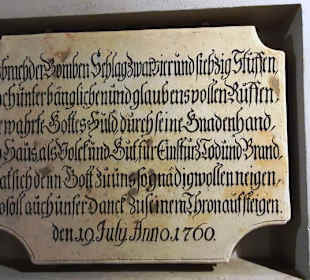 brach der Bomben Schlag zwar vier und siebzig Stuffen
unter bänglichen und glaubens vollen Ruffen,
wahrte Gottes Huld durch seine Gnadenhand,
Haus, als Volck und Hut, für Einsturz, Tod und Brand.
sich denn Gott zu uns so gnädig wollen neigen,
soll auch unser Danck zu seinem Thron aufsteigen.
den. 19. July. Anno. 1760.